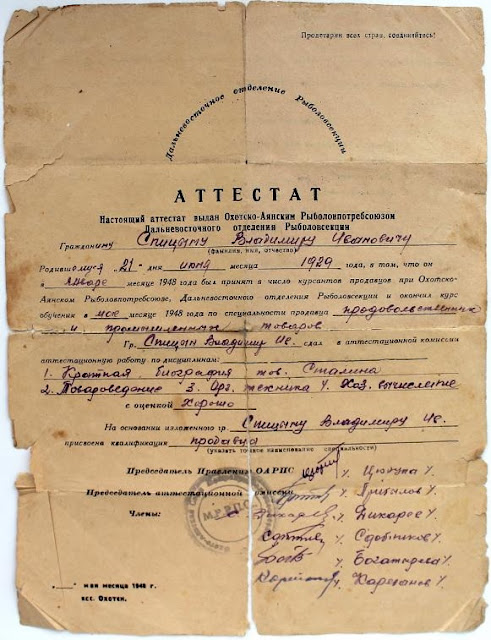 Пролетарии всех стран, соединяйтесь!
Дальневосточное отделение Рыболовсекции
АТТЕСТАТ
Настоящий аттестат выдан Охотско-Аянским Рыболовпотребсоюзом
Дальневосточного отделения Рыболовсекции
Гражданину Спицыну Владимиру Ивановичу
(фамилия, имя, отчество)
Родившемуся „21“ дня июня месяца 1929 года, в том, что он
в январе месяце 1948 года был принят в число курсантов продавцов при Охотско-
Аянском Рыболовпотребсоюзе, Дальневосточного отделения Рыболовсекции и окончил курс
обучения в мае месяце 1948 года по специальности продавца продовольственных
и промышленных товаров
Гр. Спицын Владимир Ив. сдал в аттестационной комиссии
аттестационную работу по дисциплинам:
1. Краткая биография тов. Сталина
2. Товароведение 3. Орг. техника 4. Хоз. вычисление
с оценкой хорошо
На основании изложенного гр. Спицыну Владимиру Ив.
присвоена квалификация продавца
(указать точное наименование специальности)
Председатель Правления ОАРПС Цюкупа
Председатель аттестационной комиссии
Члены: Пикарев
Сдобников
Богатырева
МЕРПС
„ “ мая месяца 1948 г.
пос. Охотск.